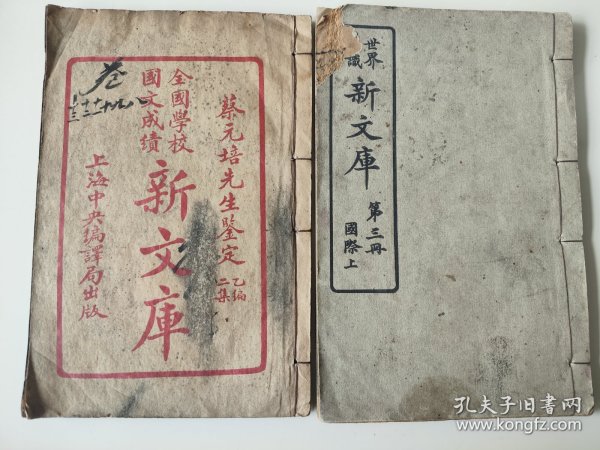 蔡元培先生鑒定
乙編
二集
全國學校
國文成績
新文庫
上海中央編譯局出版
卷
世界
識
新文庫
第三冊
國際上
孔夫子旧书网
www.kongfz.com